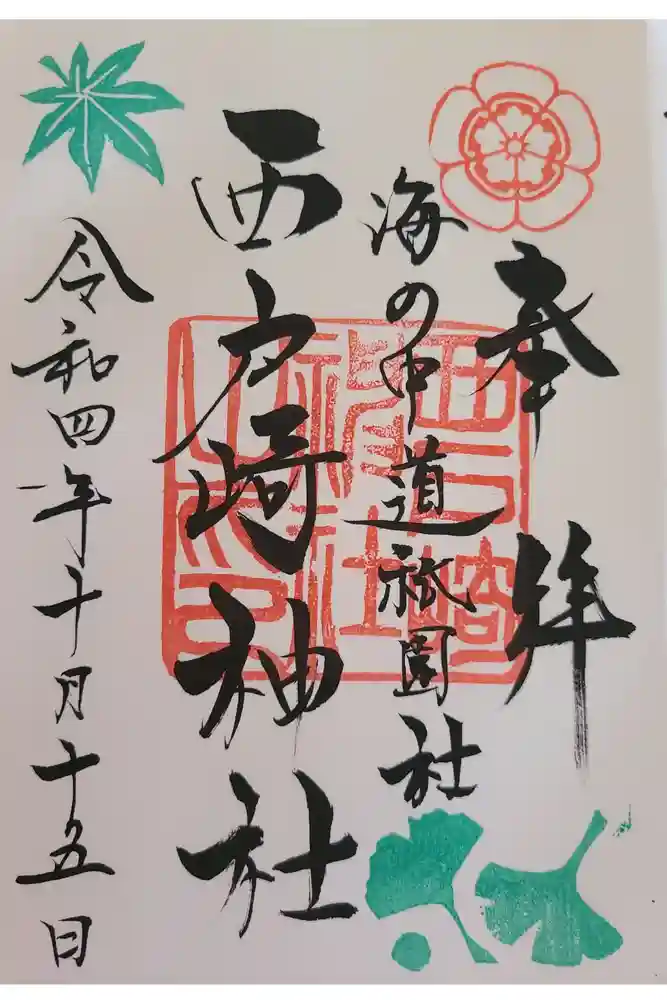 奉拝
海の中道祇園社
西戸崎神社
令和四年十月十五日
西戸崎
神社
之印